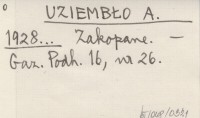 UZIEMBŁO A.
1928... Zakopane. —
Gaz. Podh. 16, nr 26.